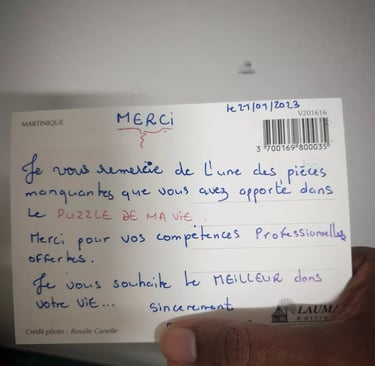 MARTINIQUE
le 21/01/2023
V201616
MERCi
3 700169 800035
Je vous remercie de l'une des pièces
manquantes que vous avez apporté dans
le PUZZLE DE MA ViE.
Merci pour vos compétences Professionnelles
offertes.
Je vous souhaite le MEILLEUR dans
votre ViE...
sincerement
Crédit photo : Rosalie Canelle